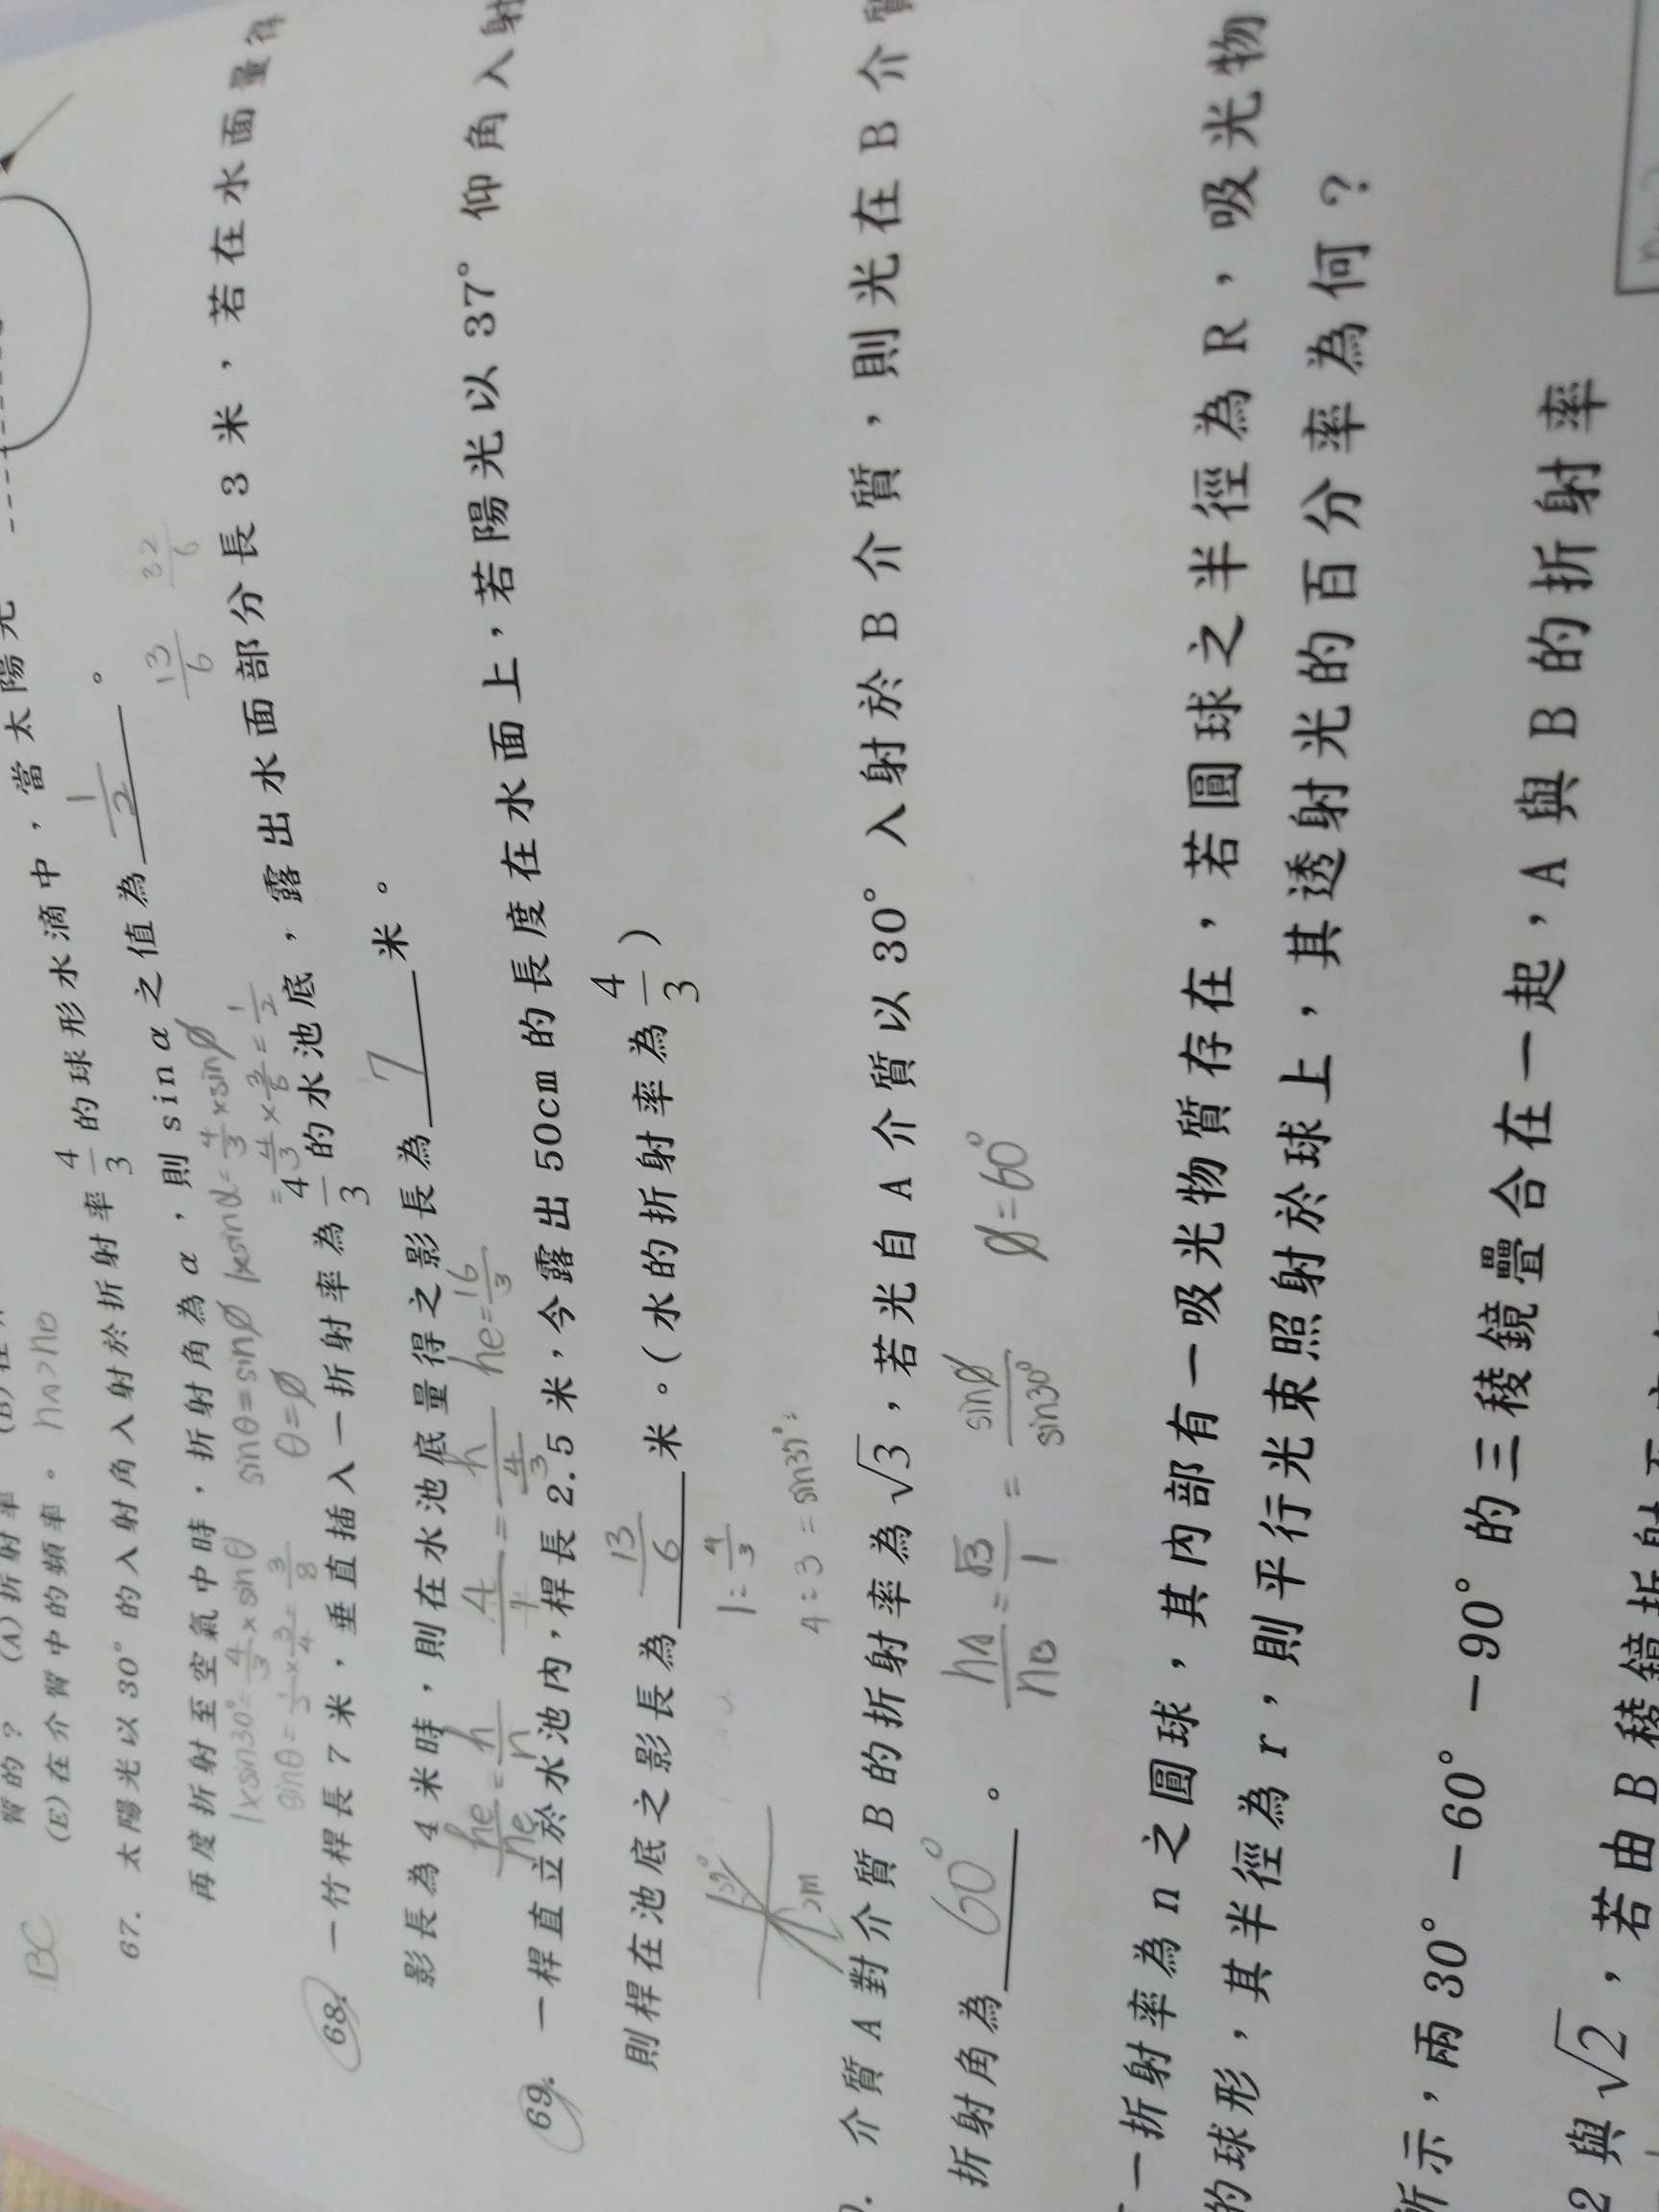 質的？ (A)折射率
(E)在介質中的頻率。 nA>nB
BC
67. 太陽光以30°的入射角入射於折射率4/3的球形水滴中，當太陽光
再度折射至空氣中時，折射角為α，則sinα之值為1/2。
1×sin30°=4/3×sinθ sinθ=sinφ 1×sinα=4/3×sinφ
θ=φ =4/3×3/8=1/2
13/6 32/6
68. 一竹桿長7米，垂直插入一折射率為4/3的水池底，露出水面部分長3米，若在水面量得
影長為4米時，則在水池底量得之影長為7米。
he/ne=h/n 4/1=h/(4/3) he=16/3
69. 一桿直立於水池內，桿長2.5米，今露出50cm的長度在水面上，若陽光以37°仰角入射
則桿在池底之影長為13/6米。(水的折射率為4/3)
1:4/3
37° 2m
4:3=sin37°:
介質A對介質B的折射率為√3，若光自A介質以30°入射於B介質，則光在B介質
折射角為60°。
nA/nB=√3/1=sinφ/sin30° φ=60°
一折射率為n之圓球，其內部有一吸光物質存在，若圓球之半徑為R，吸光物
的球形，其半徑為r，則平行光束照射於球上，其透射光的百分率為何？
所示，兩30°-60°-90°的三稜鏡疊合在一起，A與B的折射率
2與√2，若由B稜鏡折射